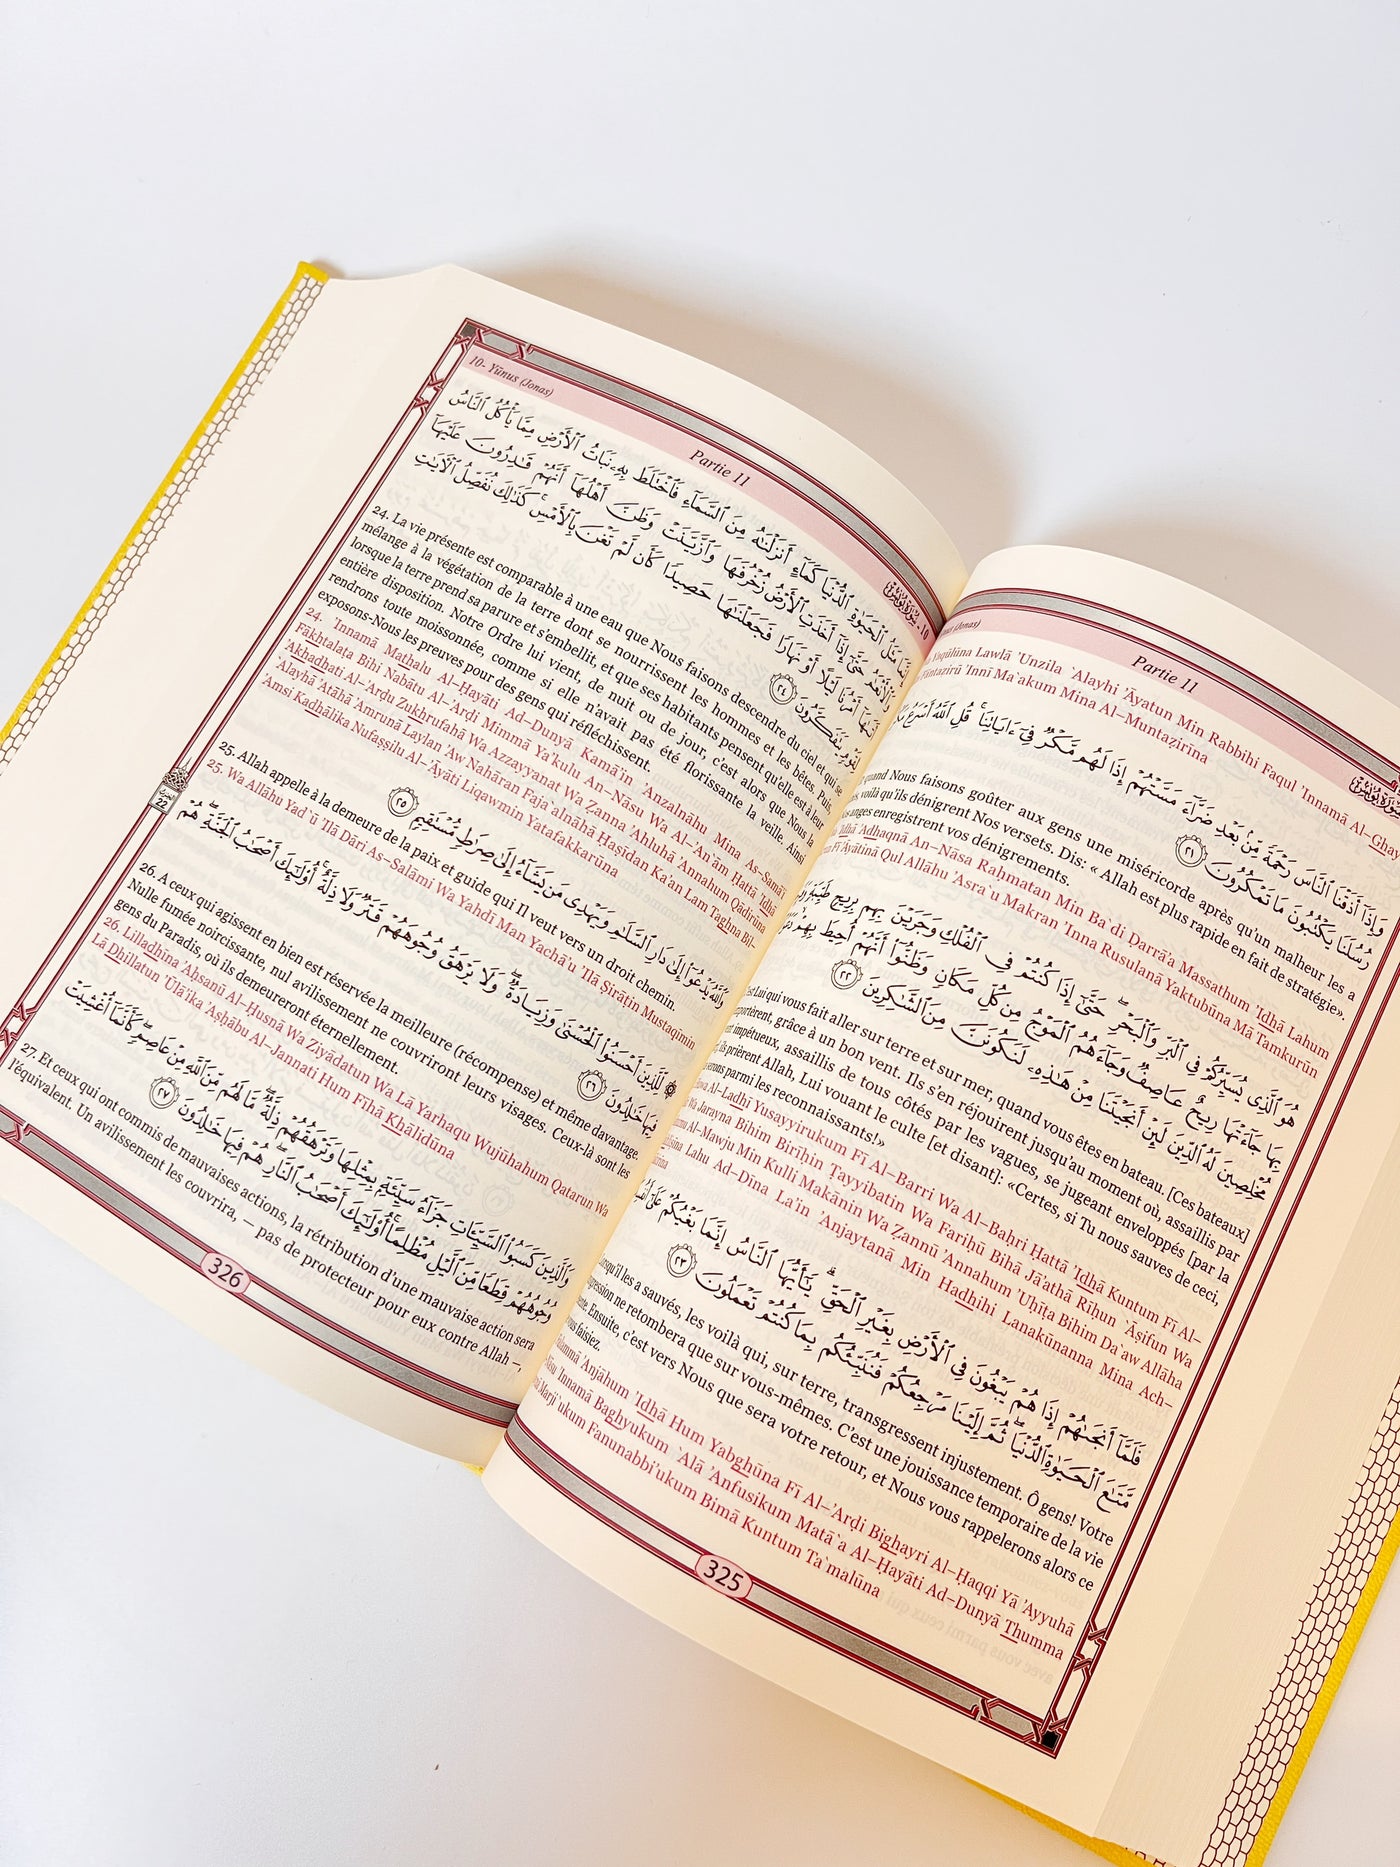 Partie 11
Yaqūlūna Lawlā 'Unzila `Alayhi 'Āyatun Min Rabbihi Faqul 'Innamā
Fāntažirū 'Innī Ma`akum Mina Al–Muntažirīna
وَإِذَآ أَذَقۡنَا ٱلنَّاسَ رَحۡمَةٗ مِّنۢ بَعۡدِ ضَرَّآءَ مَسَّتۡهُمۡ إِذَا لَهُم مَّكۡرٞ فِيٓ ءَايَاتِنَاۚ قُلِ ٱللَّهُ أَسۡرَعُ
رُسُلَنَا يَكۡتُبُونَ مَا تَمۡكُرُونَ ٢١
quand Nous faisons goûter aux gens une miséricorde après qu'un malheur les a
voilà qu'ils dénigrent Nos versets. Dis: « Allah est plus rapide en fait de stratégie».
anges enregistrent vos dénigrements.
'Idhā 'Adhaqnā An–Nāsa Raĥmatan Min Ba`di Darrā'a Massathum 'Idhā Lahum
Fī 'Āyātinā Qul Allāhu 'Asra`u Makran 'Inna Rusulanā Yaktubūna Mā Tamkurūn
هُوَ ٱلَّذِي يُسَيِّرُكُمۡ فِي ٱلۡبَرِّ وَٱلۡبَحۡرِۖ حَتَّىٰٓ إِذَا كُنتُمۡ فِي ٱلۡفُلۡكِ وَجَرَيۡنَ بِهِم بِرِيحٖ طَيِّبَةٖ
بِهَا جَآءَتۡهَا رِيحٌ عَاصِفٞ وَجَآءَهُمُ ٱلۡمَوۡجُ مِن كُلِّ مَكَانٖ وَظَنُّوٓاْ أَنَّهُمۡ أُحِيطَ بِهِمۡ
مُخۡلِصِينَ لَهُ ٱلدِّينَ لَئِنۡ أَنجَيۡتَنَا مِنۡ هَٰذِهِۦ لَنَكُونَنَّ مِنَ ٱلشَّٰكِرِينَ ٢٢
Lui qui vous fait aller sur terre et sur mer, quand vous êtes en bateau. [Ces bateaux]
grâce à un bon vent. Ils s'en réjouirent jusqu'au moment où, assaillis par
impétueux, assaillis de tous côtés par les vagues, se jugeant enveloppés [par la
ils prièrent Allah, Lui vouant le culte [et disant]: «Certes, si Tu nous sauves de ceci,
parmi les reconnaissants!»
Al–Ladhī Yusayyirukum Fī Al–Barri Wa Al–Baĥri Ĥattá 'Idhā Kuntum Fī Al–
Jarayna Bihim Birīĥin Ţayyibatin Wa Fariĥū Bihā Jā'athā Rīĥun `Āşifun Wa
Al–Mawju Min Kulli Makānin Wa Žannū 'Annahum 'Uĥīţa Bihim Da`aw Allāha
Lahu Ad–Dīna La'in 'Anjaytanā Min Hadhihi Lanakūnanna Mina Ach–
فَلَمَّآ أَنجَىٰهُمۡ إِذَا هُمۡ يَبۡغُونَ فِي ٱلۡأَرۡضِ بِغَيۡرِ ٱلۡحَقِّۗ يَٰٓأَيُّهَا ٱلنَّاسُ إِنَّمَا بَغۡيُكُمۡ عَلَىٰٓ
مَّتَٰعَ ٱلۡحَيَوٰةِ ٱلدُّنۡيَاۖ ثُمَّ إِلَيۡنَا مَرۡجِعُكُمۡ فَنُنَبِّئُكُم بِمَا كُنتُمۡ تَعۡمَلُونَ ٢٣
les a sauvés, les voilà qui, sur terre, transgressent injustement. Ô gens! Votre
ne retombera que sur vous-mêmes. C'est une jouissance temporaire de la vie
Ensuite, c'est vers Nous que sera votre retour, et Nous vous rappelerons alors ce
faisiez.
'Anjāhum 'Idhā Hum Yabghūna Fī Al–'Arđi Bighayri Al–Ĥaqqi Yā 'Ayyuhā
Innamā Baghyukum `Alá 'Anfusikum Matā`a Al–Ĥayāti Ad–Dunyā Thumma
Marji`ukum Fanunabbi'ukum Bimā Kuntum Ta`malūna
325
10- Yūnus (Jonas)
Partie 11
إِنَّمَا مَثَلُ ٱلۡحَيَوٰةِ ٱلدُّنۡيَا كَمَآءٍ أَنزَلۡنَٰهُ مِنَ ٱلسَّمَآءِ فَٱخۡتَلَطَ بِهِۦ نَبَاتُ ٱلۡأَرۡضِ مِمَّا يَأۡكُلُ ٱلنَّاسُ
وَٱلۡأَنۡعَٰمُ حَتَّىٰٓ إِذَآ أَخَذَتِ ٱلۡأَرۡضُ زُخۡرُفَهَا وَٱزَّيَّنَتۡ وَظَنَّ أَهۡلُهَآ أَنَّهُمۡ قَٰدِرُونَ عَلَيۡهَآ
أَتَىٰهَآ أَمۡرُنَا لَيۡلًا أَوۡ نَهَارٗا فَجَعَلۡنَٰهَا حَصِيدٗا كَأَن لَّمۡ تَغۡنَ بِٱلۡأَمۡسِۚ كَذَٰلِكَ نُفَصِّلُ ٱلۡأٓيَٰتِ
لِقَوۡمٖ يَتَفَكَّرُونَ ٢٤
24. La vie présente est comparable à une eau que Nous faisons descendre du ciel et qui se
mélange à la végétation de la terre dont se nourrissent les hommes et les bêtes. Puis,
lorsque la terre prend sa parure et s'embellit, et que ses habitants pensent qu'elle est à leur
entière disposition. Notre Ordre lui vient, de nuit ou de jour, c'est alors que Nous la
rendrons toute moissonnée, comme si elle n'avait pas été florissante la veille. Ainsi
exposons-Nous les preuves pour des gens qui réfléchissent.
24. 'Innamā Mathalu Al–Ĥayāti Ad–Dunyā Kamā'in 'Anzalnāhu Mina As–Samā'i
Fākhtalaţa Bihi Nabātu Al–'Arđi Mimmā Ya'kulu An–Nāsu Wa Al–'An`ām Ĥattá 'Idhā
'Akhadhati Al–'Arđu Zukhrufahā Wa Azzayyanat Wa Žanna 'Ahluhā 'Annahum Qādirūna
`Alayhā 'Atāhā 'Amrunā Laylan 'Aw Nahāran Faja`alnāhā Ĥaşīdan Ka'an Lam Taghna Bil–
'Amsi Kadhālika Nufaşşilu Al–'Āyāti Liqawmin Yatafakkarūna
وَٱللَّهُ يَدۡعُوٓاْ إِلَىٰ دَارِ ٱلسَّلَٰمِ وَيَهۡدِي مَن يَشَآءُ إِلَىٰ صِرَٰطٖ مُّسۡتَقِيمٖ ٢٥
25. Allah appelle à la demeure de la paix et guide qui Il veut vers un droit chemin.
25. Wa Allāhu Yad`ū 'Ilá Dāri As–Salāmi Wa Yahdī Man Yachā'u 'Ilá Şirāţin Mustaqīmin
لِّلَّذِينَ أَحۡسَنُواْ ٱلۡحُسۡنَىٰ وَزِيَادَةٞۖ وَلَا يَرۡهَقُ وُجُوهَهُمۡ قَتَرٞ وَلَا ذِلَّةٌۚ أُوْلَٰٓئِكَ أَصۡحَٰبُ ٱلۡجَنَّةِۖ هُمۡ
فِيهَا خَٰلِدُونَ ٢٦
26. A ceux qui agissent en bien est réservée la meilleure (récompense) et même davantage.
Nulle fumée noircissante, nul avilissement ne couvriront leurs visages. Ceux-là sont les
gens du Paradis, où ils demeureront éternellement.
26. Lilladhīna 'Aĥsanū Al–Ĥusná Wa Ziyādatun Wa Lā Yarhaqu Wujūhahum Qatarun Wa
Lā Dhillatun 'Ūlā'ika 'Aşĥābu Al–Jannati Hum Fīhā Khālidūna
وَٱلَّذِينَ كَسَبُواْ ٱلسَّيِّـَٔاتِ جَزَآءُ سَيِّئَةِۭ بِمِثۡلِهَا وَتَرۡهَقُهُمۡ ذِلَّةٞۖ مَّا لَهُم مِّنَ ٱللَّهِ مِنۡ عَاصِمٖۖ كَأَنَّمَآ أُغۡشِيَتۡ
وُجُوهُهُمۡ قِطَعٗا مِّنَ ٱلَّيۡلِ مُظۡلِمًاۚ أُوْلَٰٓئِكَ أَصۡحَٰبُ ٱلنَّارِۖ هُمۡ فِيهَا خَٰلِدُونَ ٢٧
27. Et ceux qui ont commis de mauvaises actions, la rétribution d'une mauvaise action sera
l'équivalent. Un avilissement les couvrira, — pas de protecteur pour eux contre Allah –,
326